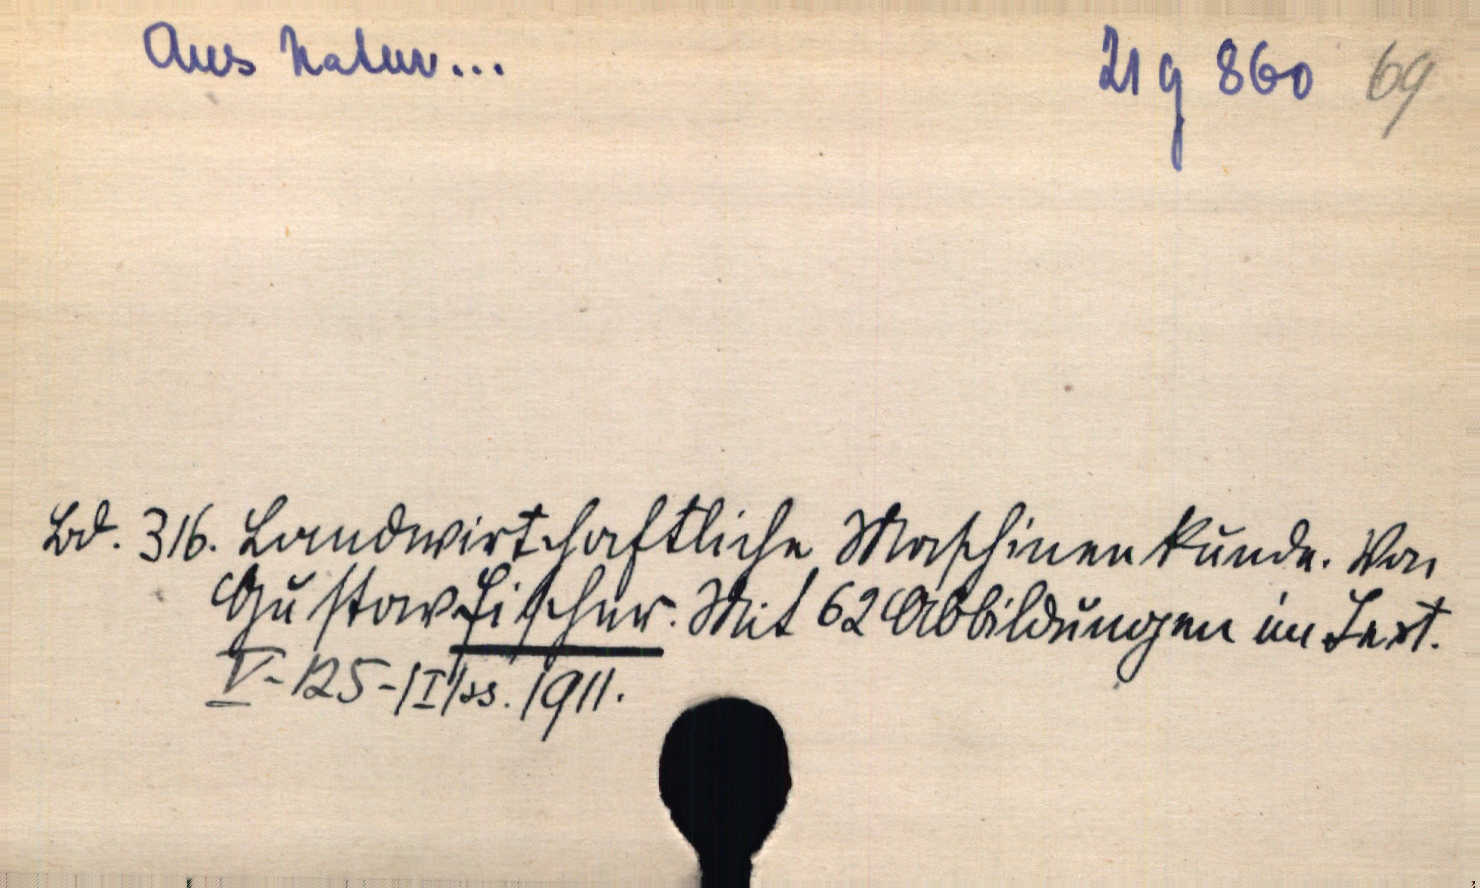 Aus Natur... 21 g 860 69
Bd. 316. Landwirtschaftliche Maschinenkunde. Von
Gustav Fischer. Mit 62 Abbildungen im Text.
V-125-/I/ss. 1911.